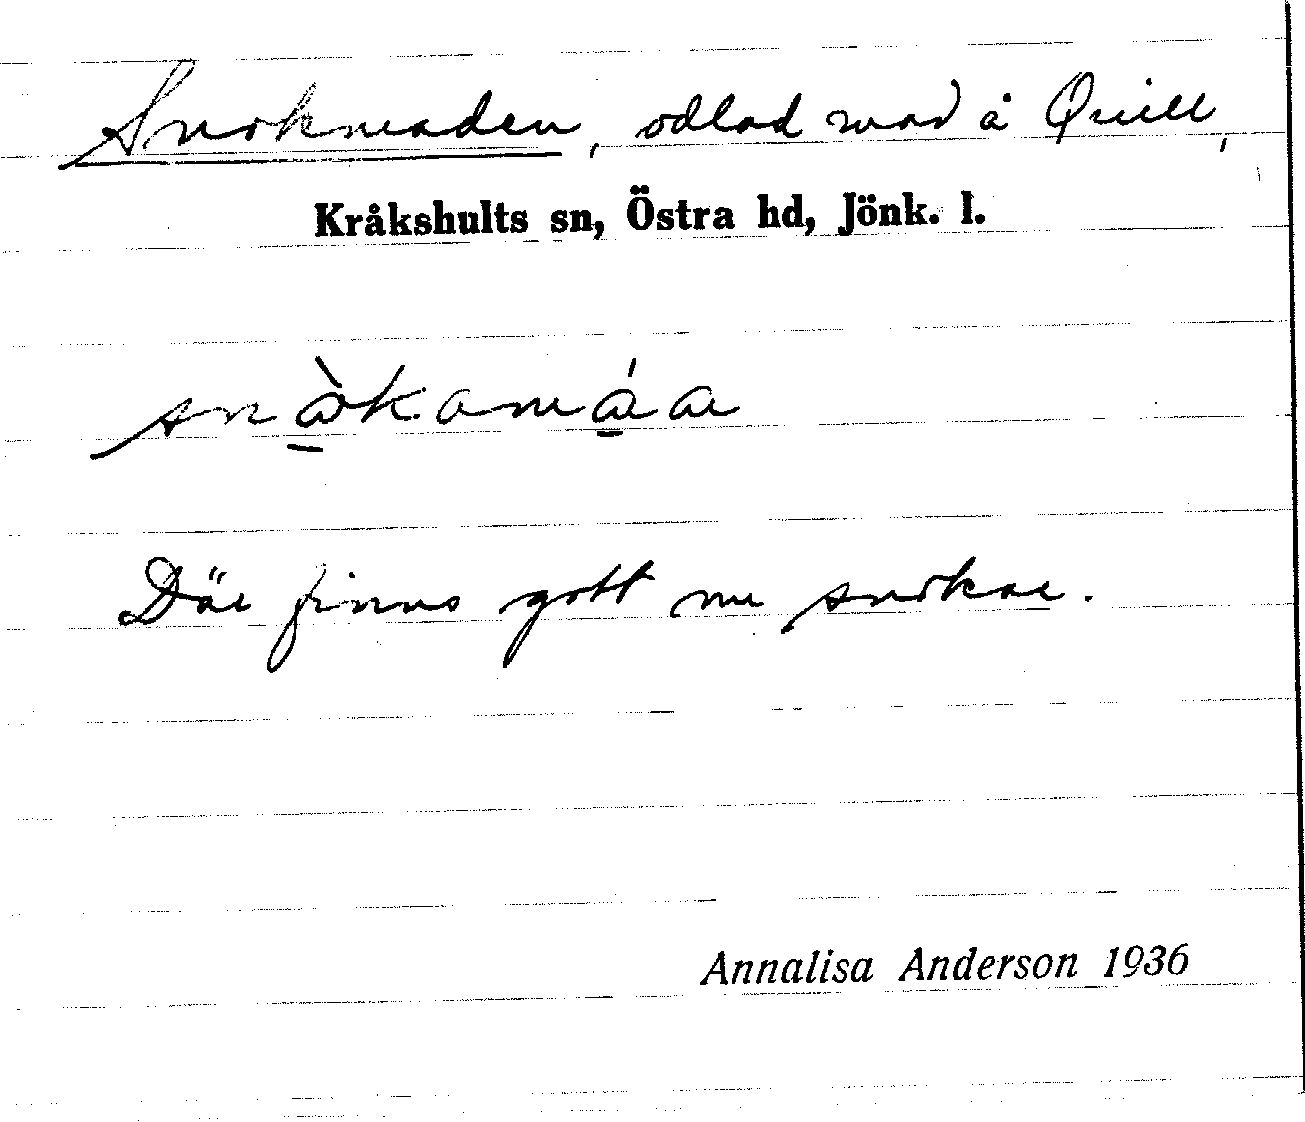 Snokmaden, odlad mad å Quill,
Kråkshults sn, Östra hd, Jönk. l.
snò̱kamá̱a
Där finns gott mä snokar.
Annalisa Anderson 1936